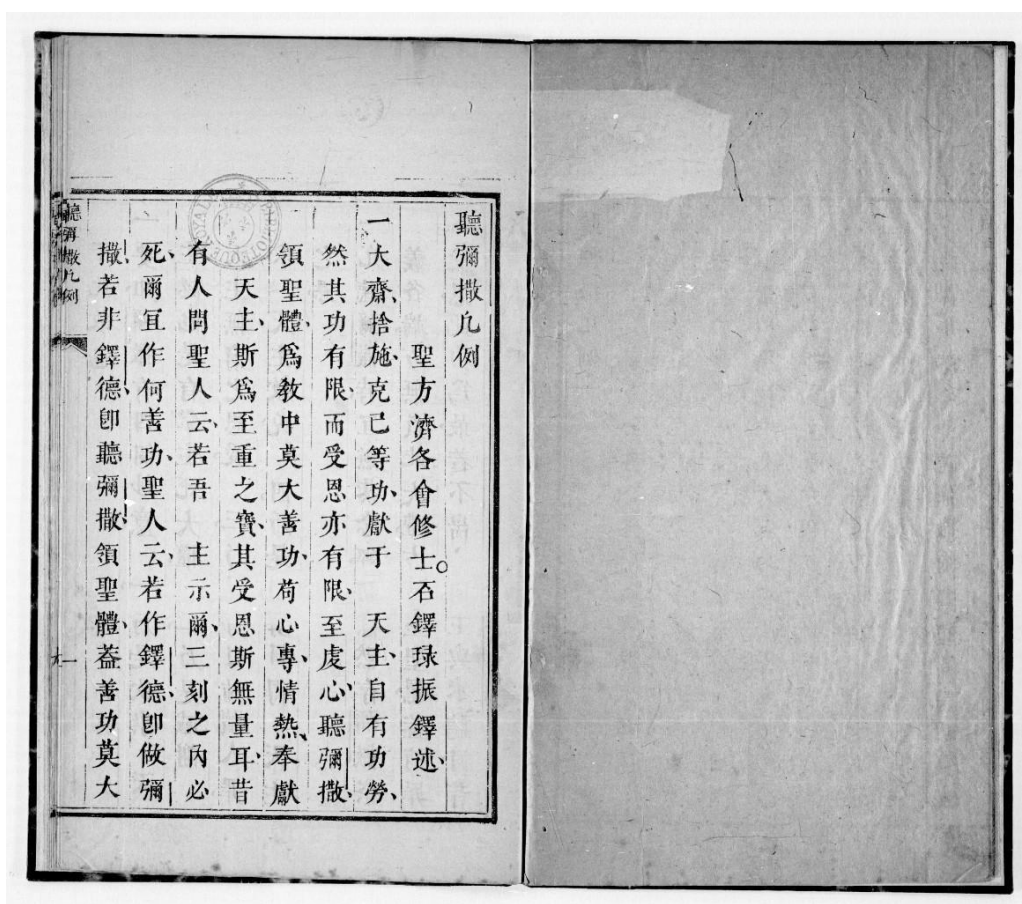 聽彌撒凡例
聖方濟各會修士石鐸琭振鐸述
一大齋捨施克己等功獻于 天主自有功勞
然其功有限而受恩亦有限至虔心聽彌撒
領聖體爲教中莫大善功苟心專情熱奉獻
天主斯爲至重之寶其受恩斯無量耳昔
有人問聖人云若吾 主示爾三刻之內必
死爾宜作何善功聖人云若作鐸德卽做彌
撒若非鐸德卽聽彌撒領聖體葢善功莫大
聽彌撒凡例
一